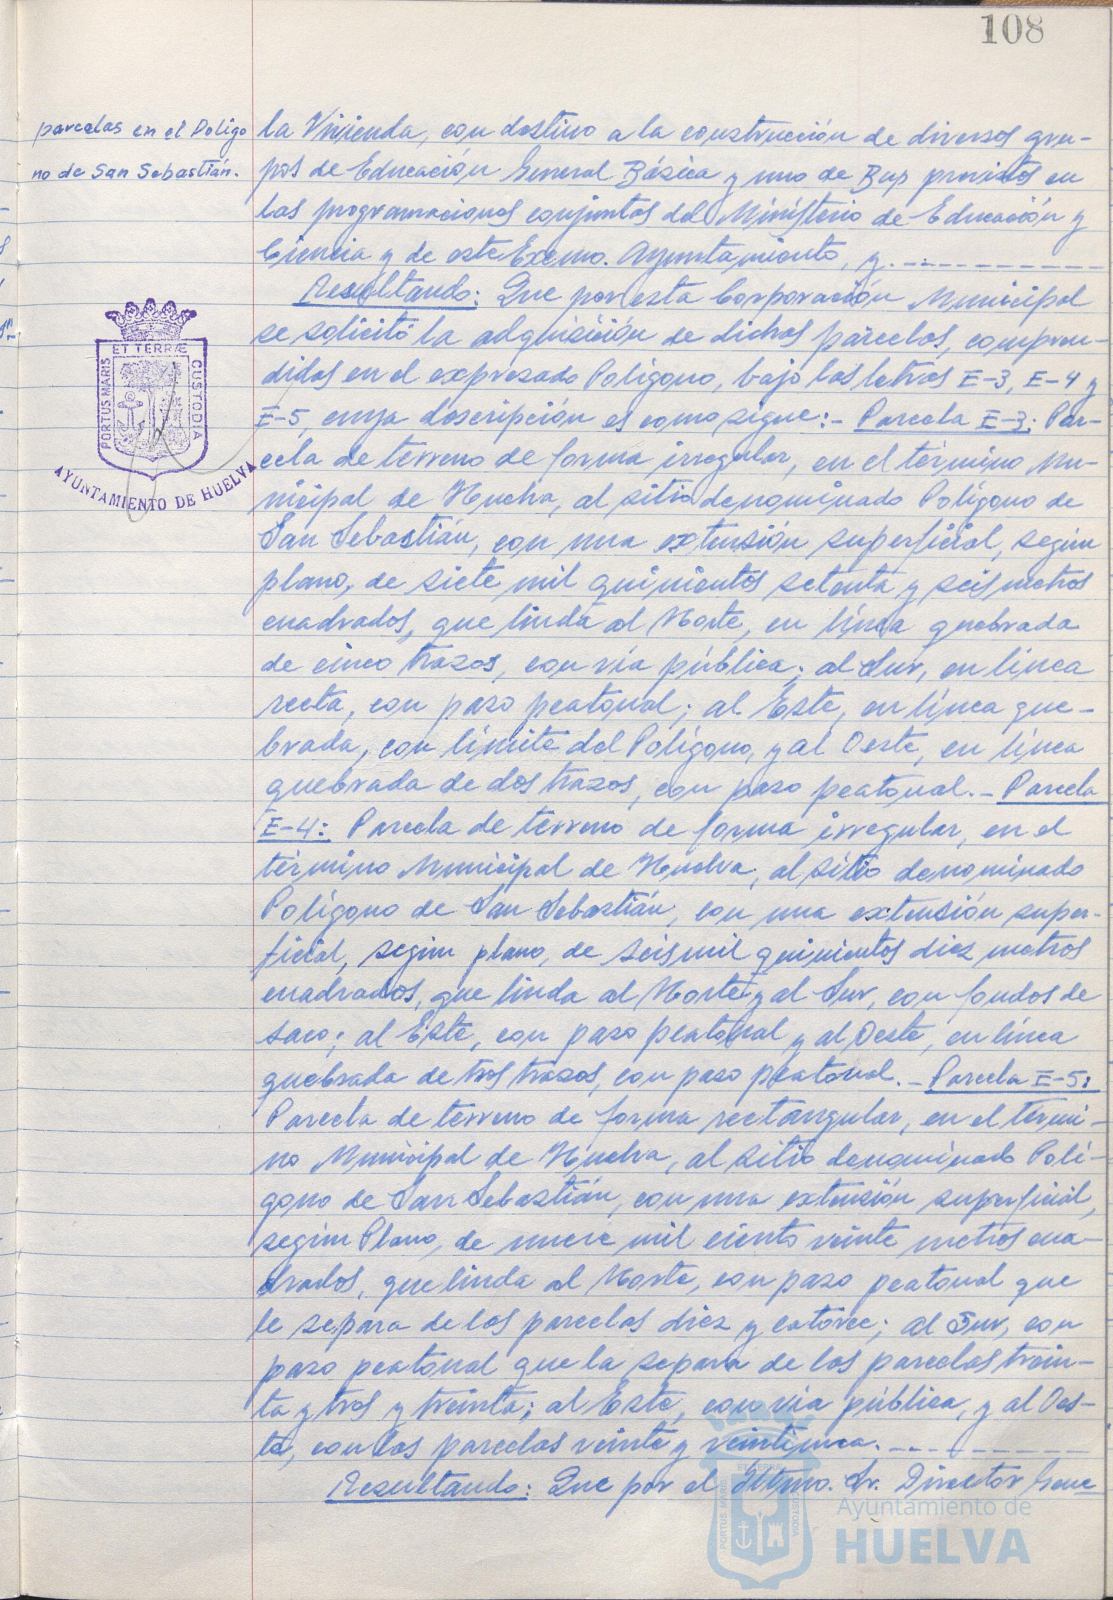 108
parcelas en el Polígo
no de San Sebastián.
la Vivienda, con destino a la construcción de diversos gru-
pos de Educación General Básica y uno de Bup previstos en
las programaciones conjuntas del Ministerio de Educación y
Ciencia y de este Excmo. Ayuntamiento, y.
Resultando: Que por esta Corporación Municipal
se solicitó la adquisición de dichas parcelas, compren-
didas en el expresado Polígono, bajo las letras E-3, E-4 y
E-5, cuya descripción es como sigue:- Parcela E-3: Par-
cela de terreno de forma irregular, en el término Mu-
nicipal de Huelva, al sitio denominado Polígono de
San Sebastián, con una extensión superficial, según
plano, de siete mil quinientos setenta y seis metros
cuadrados, que linda al Norte, en línea quebrada
de cinco trazos, con vía pública; al Sur, en línea
recta, con paso peatonal; al Este, en línea que-
brada, con límite del Polígono, y al Oeste, en línea
quebrada de dos trazos, con paso peatonal.- Parcela
E-4: Parcela de terreno de forma irregular, en el
término Municipal de Huelva, al sitio denominado
Polígono de San Sebastián, con una extensión super-
ficial, según plano, de seis mil quinientos diez metros
cuadrados, que linda al Norte y al Sur, con fondos de
saco; al Este, con paso peatonal y al Oeste, en línea
quebrada de tres trazos, con paso peatonal.- Parcela E-5:
Parcela de terreno de forma rectangular, en el térmi-
no Municipal de Huelva, al sitio denominado Polí-
gono de San Sebastián, con una extensión superficial,
según Plano, de nueve mil ciento veinte metros cua-
drados, que linda al Norte, con paso peatonal que
le separa de las parcelas diez y catorce; al Sur, con
paso peatonal que la separa de las parcelas trein-
ta y tres y treinta; al Este, con vía pública, y al Oes-
te, con las parcelas veinte y veintiuna.
Resultando: Que por el Iltmo. Sr. Director Gene
PORTUS MARIS ET TERRÆ CUSTODIA
AYUNTAMIENTO DE HUELVA
PORTUS MARIS ET TERRÆ CUSTODIA
Ayuntamiento de
HUELVA